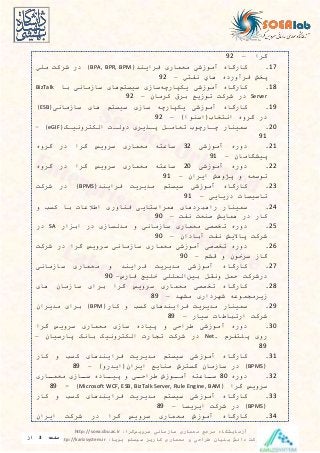 SOEAlab
گرا - 92
17. کارگاه آموزشی معماری فرایند (BPA, BPR, BPM) در شرکت ملی
پخش فرآورده های نفتی - 92
18. کارگاه آموزشی یکپارچه‌سازی سیستم‌های سازمانی با BizTalk
Server در شرکت توزیع برق کرمان - 92
19. کارگاه آموزشی یکپارچه سازی سیستم های سازمانی (ESB)
در گروه انتخاب (اسنوا) - 92
20. سمینار چارچوب تعامل پذیری دولت الکترونیک (eGIF) -
91
21. دوره آموزشی 32 ساعته معماری سرویس گرا در گروه
پیشگامان - 91
22. دوره آموزشی 20 ساعته معماری سرویس گرا در گروه
توسعه و پژوهش ایران - 91
23. کارگاه آموزشی سیستم مدیریت فرایند (BPMS) در شرکت
تاسیسات دریایی - 91
24. سمینار راهبردهای همراستایی فناوری اطلاعات با کسب و
کار در همایش صنعت نفت - 90
25. دوره تخصصی معماری سازمانی و مدلسازی در ابزار SA در
شرکت پالایش نفت آبادان - 90
26. دوره تخصصی آموزشی معماری سازمانی سرویس گرا در شرکت
گاز سرخون و قشم - 90
27. کارگاه آموزشی مدیریت فرایند و معماری سازمانی
درشرکت حمل ونقل بین‌المللی خلیج فارس - 90
28. کارگاه تخصصی معماری سرویس گرا برای سازمان های
زیرمجموعه شهرداری مشهد - 89
29. سمینار مدیریت فرایندهای کسب و کار (BPM) برای مدیران
شرکت ارتباطات سیار - 89
30. دوره آموزشی طراحی و پیاده سازی معماری سرویس گرا
روی پلتفرم .Net در شرکت تجارت الکترونیک بانک پارسیان -
89
31. کارگاه آموزشی سیستم مدیریت فرایندهای کسب و کار
(BPMS) در سازمان گسترش صنایع ایران (ایدرو) - 89
32. دوره 80 ساعته آموزش طراحی و پیاده سازی معماری
سرویس گرا (Microsoft WCF, ESB, BizTalk Server, Rule Engine, BAM) - 89
33. کارگاه آموزشی سیستم مدیریت فرایندهای کسب و کار
(BPMS) در شرکت ایریسا - 89
34. کارگاه آموزش معماری سرویس گرا در شرکت ایران
آزمایشگاه مرجع معماری سازمانی سرویس‌گرا: http://soea.sbu.ac.ir
صفحه 3 از